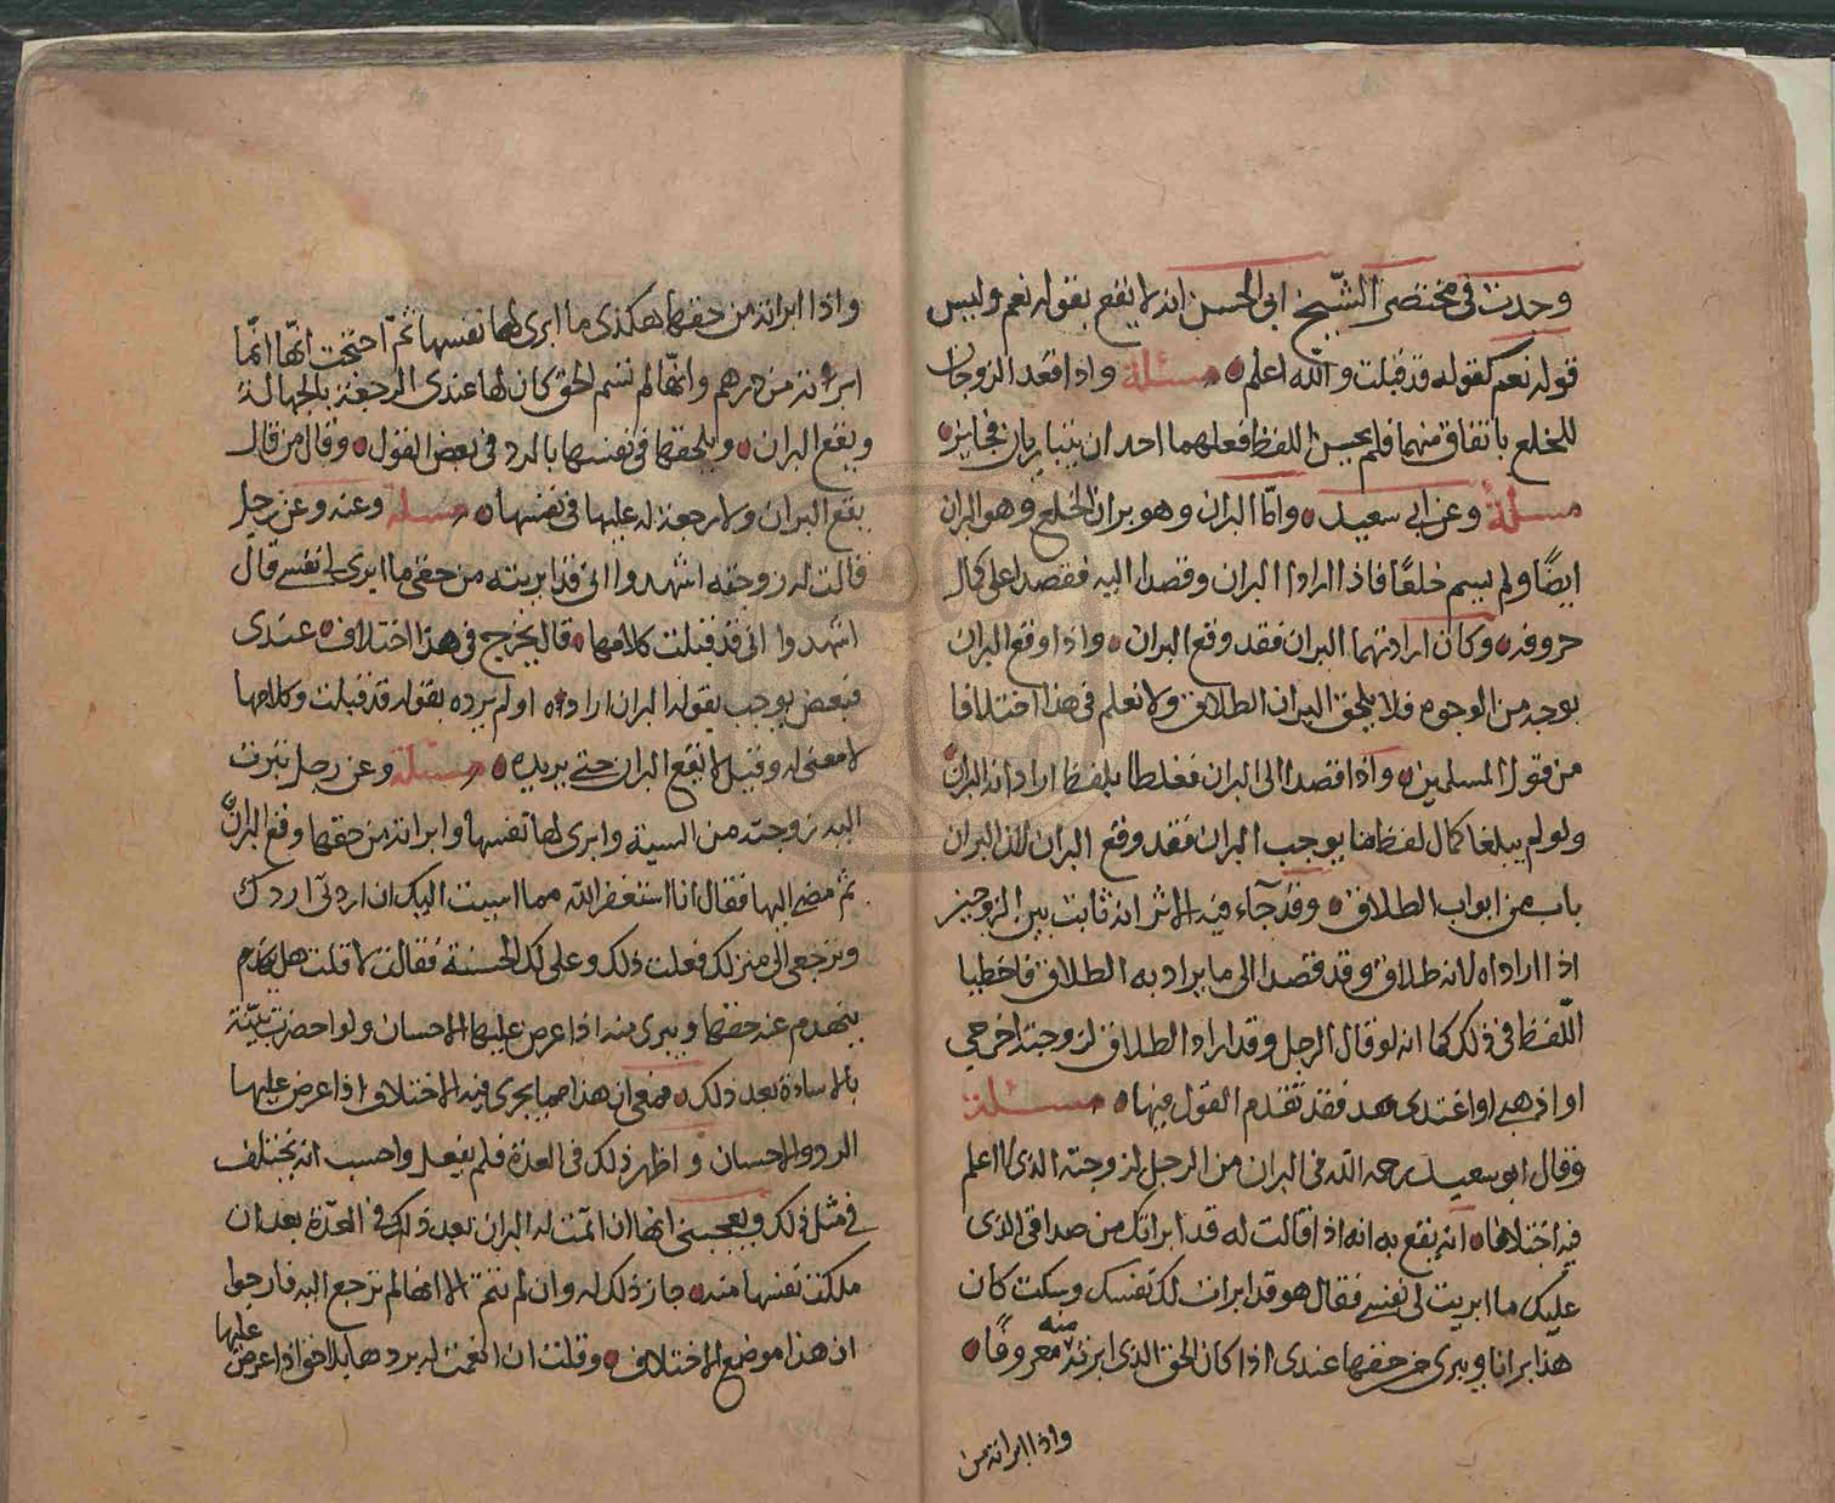 وجدت في مختصر الشيخ ابي الحسن انه لا يقع بقوله نعم وليس
قوله نعم كقوله قد قبلت والله اعلم مسئلة واذا قعد الزوجان
للخلع باتفاق منهما فلم يحسن اللفظ فعلهما احد ان يتباريان فجايز
مسئلة وعن ابي سعيد واما البران وهو بران الخلع وهو البران
ايضًا ولم يسم خلعًا فاذا ارادا البران وقصدا اليه فقصدا على كمال
حروفه وكان ارادتهما البران فقد وقع البران واذا وقع البران
بوجه من الوجوه فلا يلحق البران الطلاق ولا نعلم في هذا اختلافا
من قول المسلمين واذا قصدا الى البران فغلطا بلفظ ارادا به البران
ولو لم يبلغا كمال لفظ ما يوجب البران فقد وقع البران لان البران
باب من ابواب الطلاق وقد جآء فيه الاثر انه ثابت بين الزوجين
اذا اراداه لانه طلاق وقد قصدا الى ما يراد به الطلاق فاخطيا
اللفظ في ذلك كما انه لو قال الرجل وقد اراد الطلاق لزوجته اخرجي
او اذهبي او اعتدي فقد تقدم القول فيها مسئلة
وقال ابو سعيد رحمه الله في البران من الرجل لزوجته الذي لا اعلم
فيه اختلافا انه يقع به انه اذا قالت له قد ابراتك من صداقي الذي
عليك ما ابريت لي نفسي فقال هو قد ابرات لك نفسك وسكت كان
هذا برانا ويبرى من حقها عندي اذا كان الحق الذي ابرته منه معروفًا
واذا ابراته من
واذا ابراته من حقها هكذى ما ابرى لها نفسها ثم احتجت انها انما
ابراته من درهم وانها لم تسم الحق كان لها عندي الرجعة بالجهالة
ويقع البران ويلحقها في نفسها بالرد في بعض القول وقال من قال
يقع البران ولا رجعة له عليها في نفسها مسئلة وعنه وعن رجل
قالت له زوجته اشهدوا اني قد ابريته من حقي ما ابرى لي نفسي قال
اشهدوا اني قد قبلت كلامها قال يخرج في هذا اختلاف عندي
فبعض يوجب بقوله البران اراده او لم يرده بقوله قد قبلت وكلامها
لا معنى له وقيل لا يقع البران حتى يريده مسئلة وعن رجل تبرت
اليه زوجته من السية وابرى لها نفسها وابراته من حقها وقع البران
ثم مضى اليها فقال انا استغفر الله مما اسيت اليك ان اردتي اردك
وترجعي الى منزلك فعلت ذلك وعلى لك الحسنة فقالت لا قلت هل ينهدم
ينهدم عنه حقها ويبرى منه اذا عرض عليها الاحسان ولو احضرت بينة
بالاساءة بعد ذلك فمعي ان هذا مما يجري فيه الاختلاف اذا عرض عليها
الرد والاحسان واظهر ذلك في العدة فلم يفعل واحسب انه يختلف
في مثل ذلك ويعجبني انها ان اتمت له البران بعد ذلك في العدة بعد ان
ملكت نفسها منه جاز ذلك له وان لم تتم الا انها لم ترجع اليه فارجوا
ان هذا موضع الاختلاف وقلت ان انعمت له يردها بلا حق اذا عرض عليها